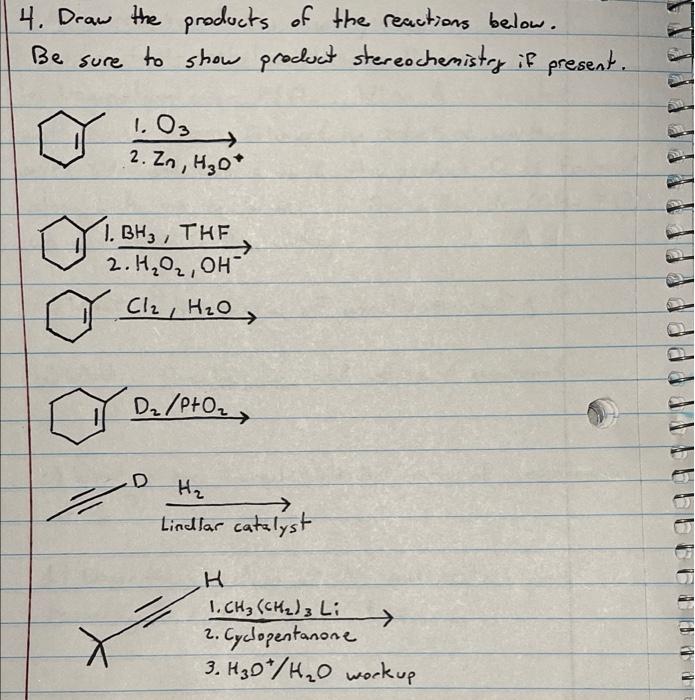 4. Draw the products of the reactions below.
Be sure to show product stereochemistry if present.
1. O₃
2. Zn, H₃O⁺
1. BH₃, THF
2. H₂O₂, OH⁻
Cl₂, H₂O
D₂/PtO₂
D
H₂
Lindlar catalyst
H
1. CH₃(CH₂)₃Li
2. Cyclopentanone
3. H₃O⁺/H₂O workup